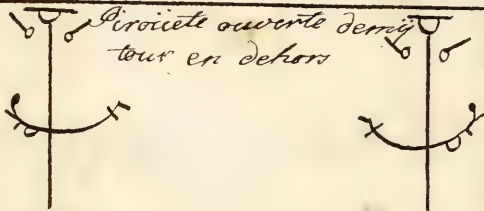 Piroüete ouverte demÿ
tour en dehors